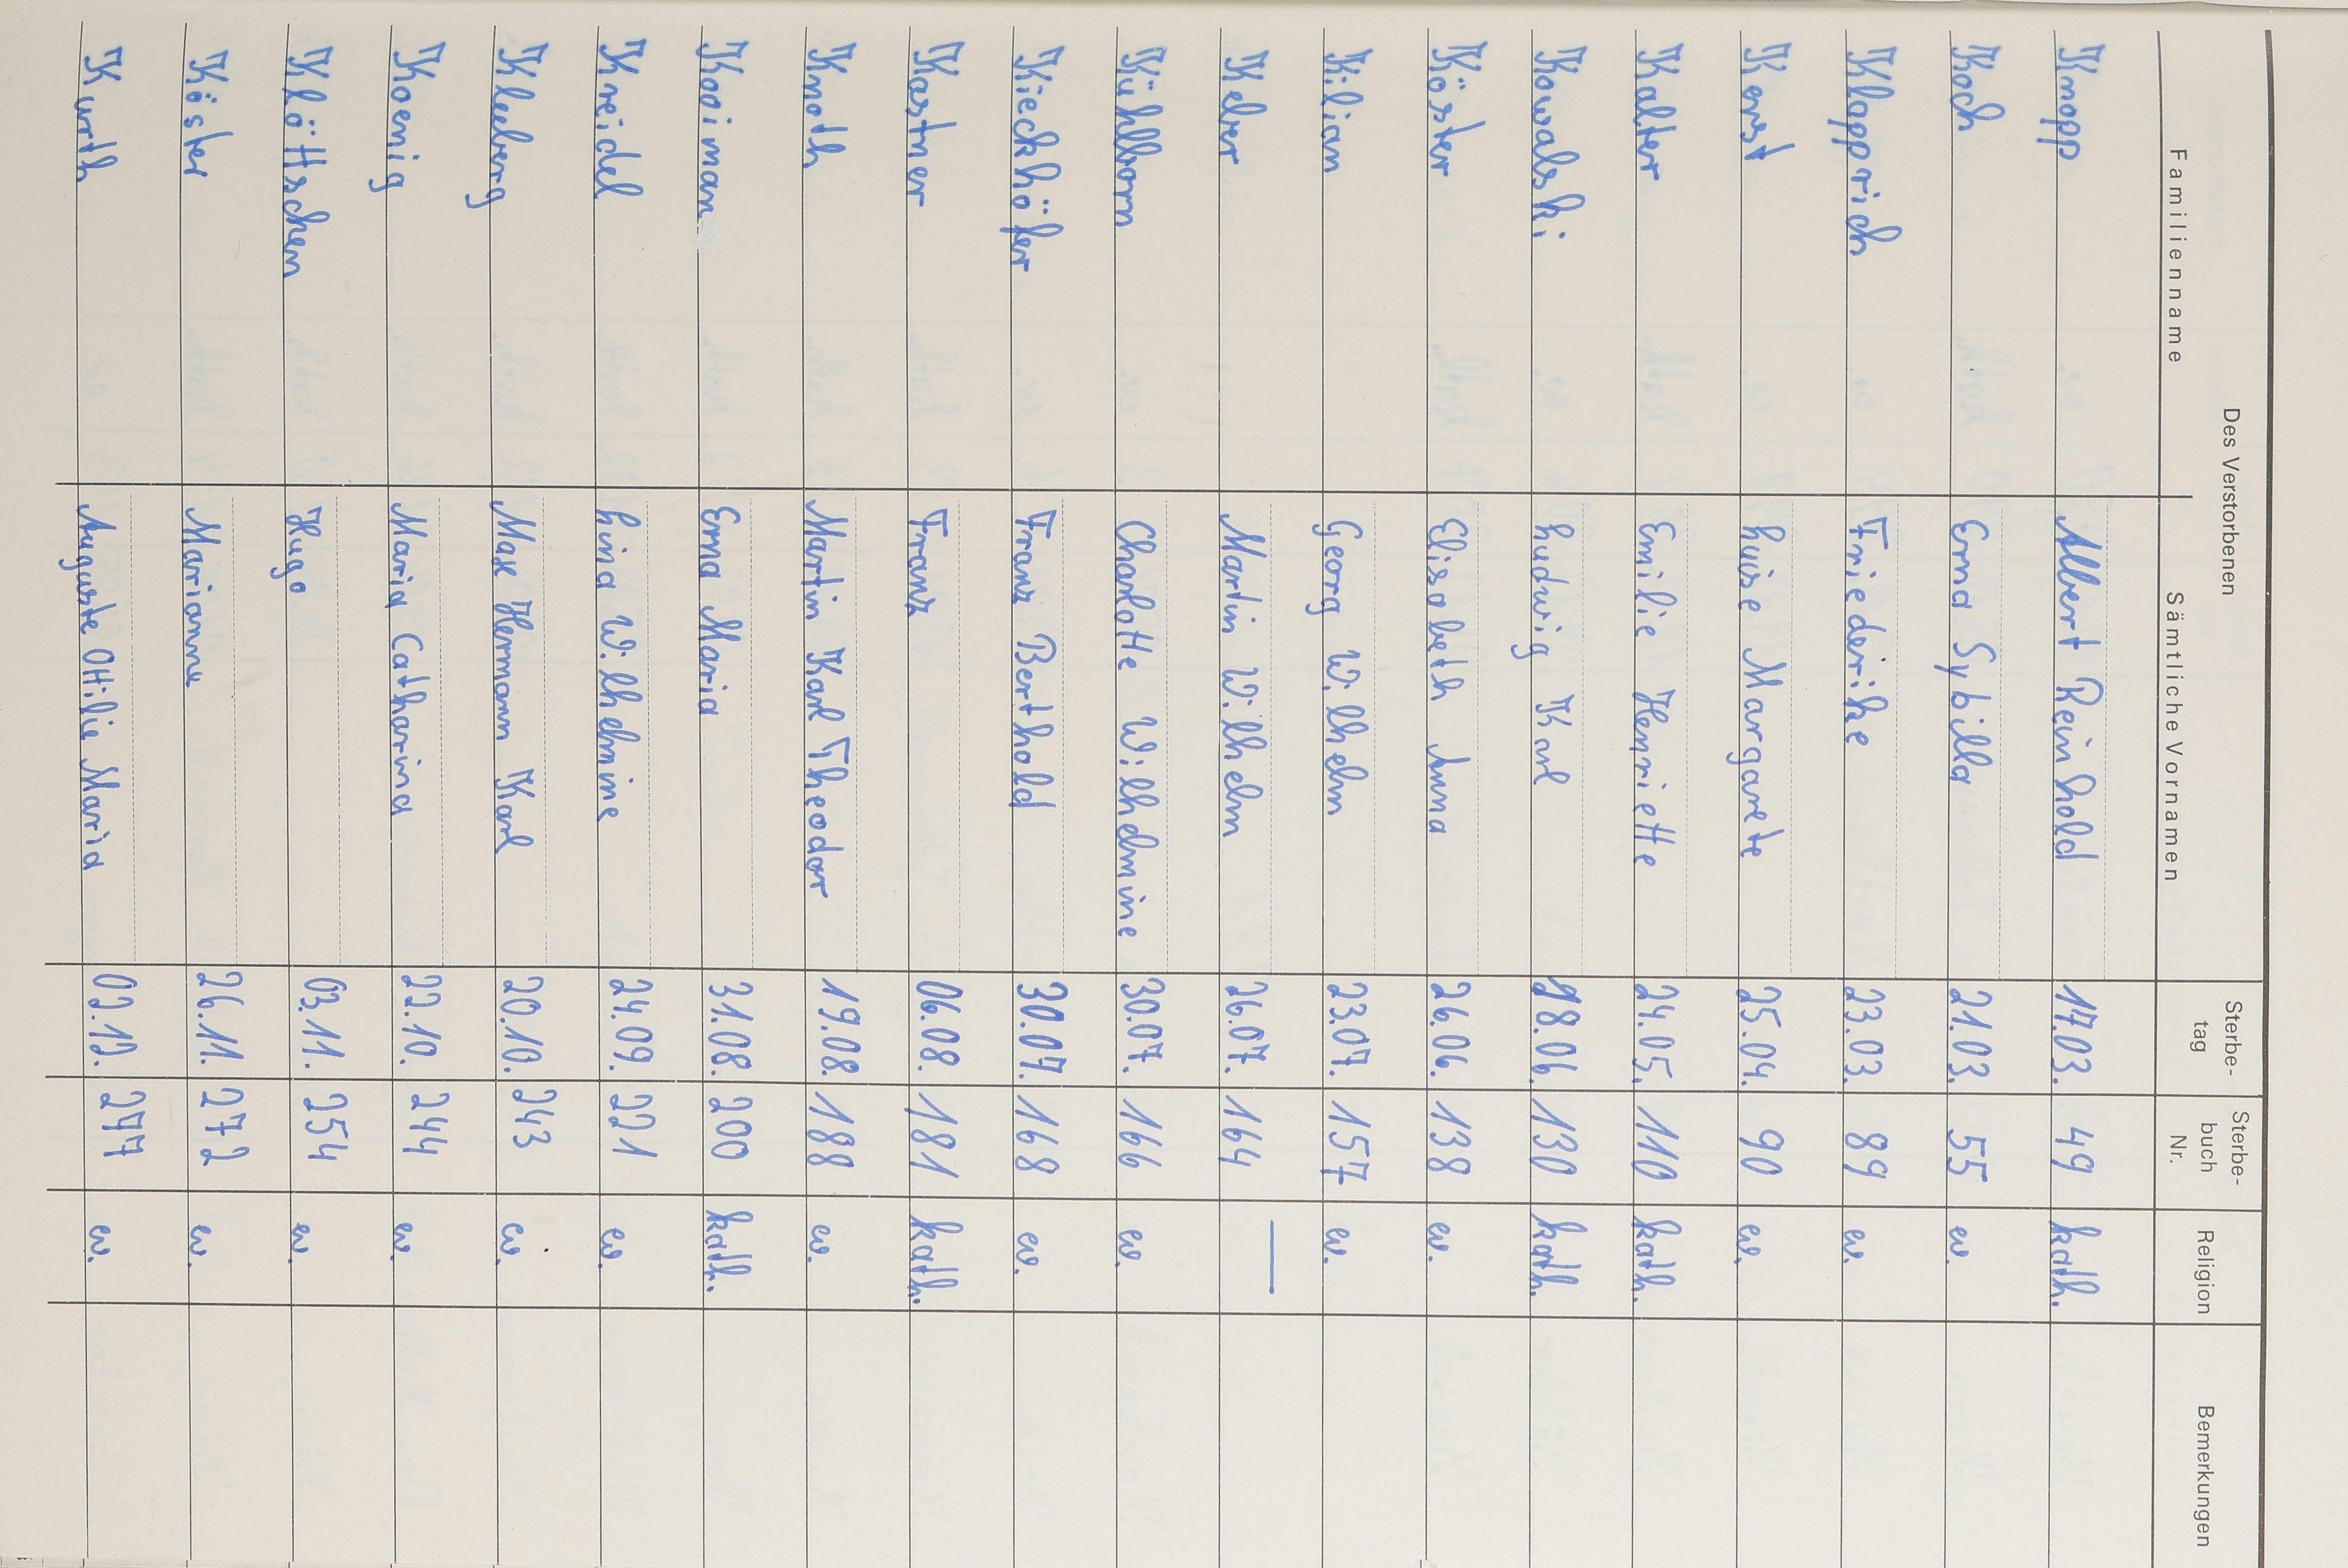 Des Verstorbenen
Familienname Sämtliche Vornamen Sterbe-tag Sterbe-buch Nr. Religion Bemerkungen
Knopp Albert Reinhold 17.03. 49 kath.
Koch Erna Sybilla 21.03. 55 ev.
Klapprich Friederike 23.03. 89 ev.
Kerst Luise Margarete 25.04. 90 ev.
Kalter Emilie Henriette 24.05. 110 kath.
Kowalski Ludwig Karl 18.06. 130 kath.
Köster Elisabeth Anna 26.06. 138 ev.
Kilian Georg Wilhelm 23.07. 157 ev.
Kelber Martin Wilhelm 26.07. 164 —
Kühlborn Charlotte Wilhelmine 30.07. 166 ev.
Kieckhöfer Franz Berthold 30.07. 168 ev.
Kastner Franz 06.08. 181 kath.
Knoth Martin Karl Theodor 19.08. 188 ev.
Kooiman Erna Maria 31.08. 200 kath.
Kreidel Lina Wilhelmine 24.09. 221 ev.
Kleeberg Max Hermann Karl 20.10. 243 ev.
Koenig Maria Catharina 22.10. 244 ev.
Klöttschen Hugo 03.11. 254 ev.
Köster Marianne 26.11. 272 ev.
Kurth Auguste Ottilie Maria 02.12. 277 ev.